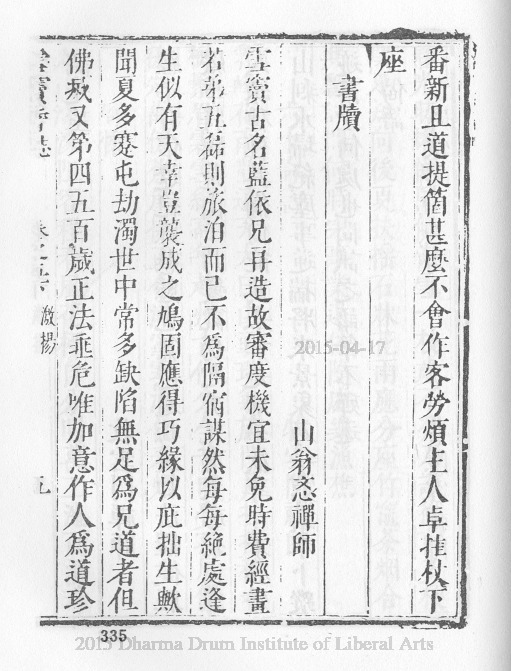 番新且道提箇甚麼不會作客勞煩主人卓拄杖下
座
書牘
山翁忞禪師
雪竇古名藍依兄再造故審度機宜未免時費經畫
若弟五磊則旅泊而已不為隔宿謀然每每絕處逢
生似有天幸豈襲成之鳩固應得巧緣以庇拙生歟
聞夏多蹇屯劫濁世中常多缺陷無足為兄道者但
佛赦又第四五百歲正法垂危唯加意作人為道珍
雪竇寺誌
卷之五下
激揚
九
2015-04-17
335
2015 Dharma Drum Institute of Liberal Arts